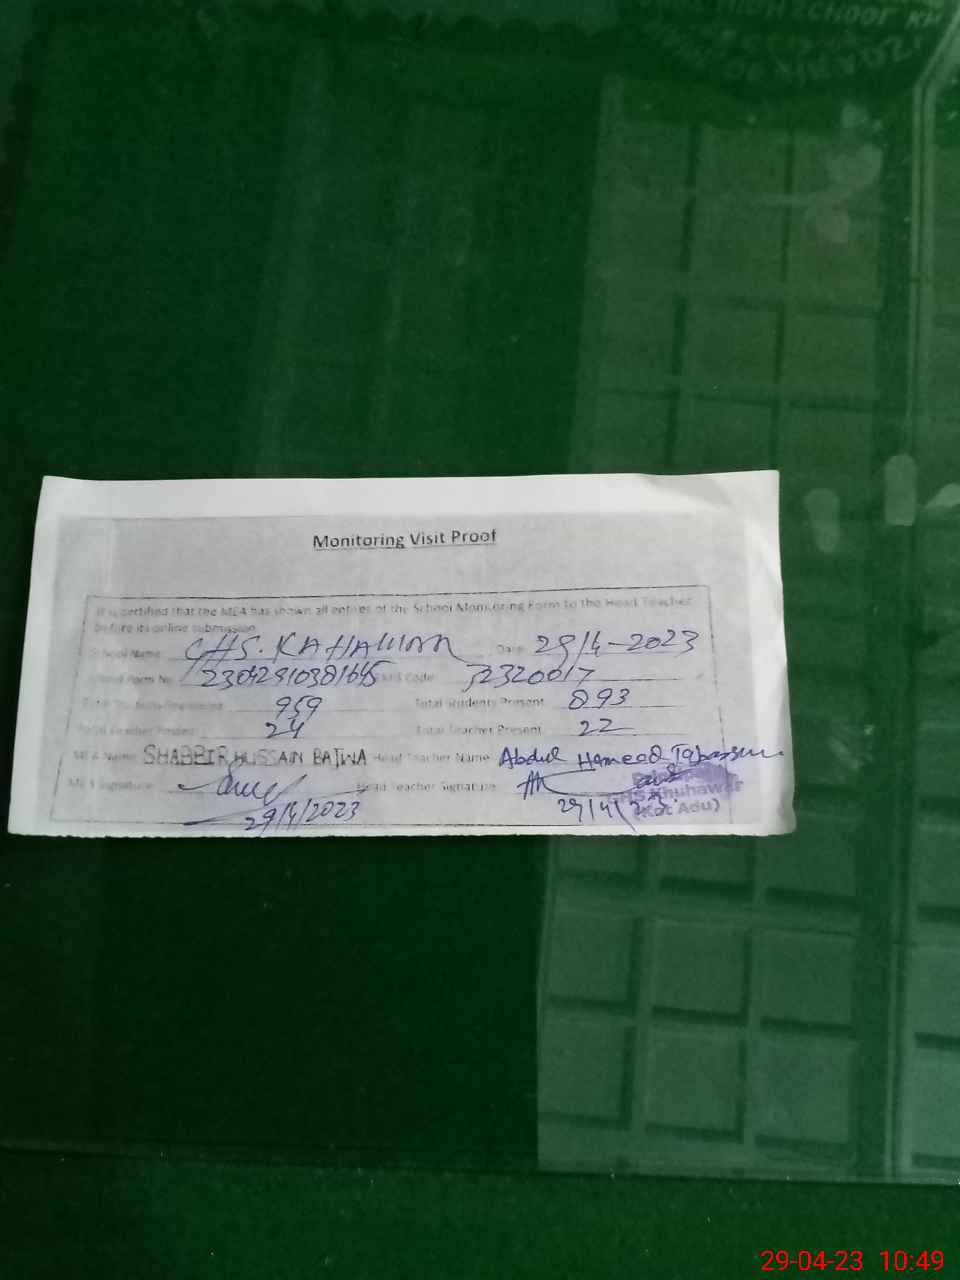 HIGH SCHOOL KH
Monitoring Visit Proof
It is certified that the MEA has shown all entries of the School Monitoring Form to the Head Teacher
before its online submission
School Name: GHS. KAHAWAR Date: 29/4-2023
Form No 23042910381645 EMIS Code 32320017
959 Total Students Present 893
Total Teacher Posted 24 Total Teacher Present 22
MEA Name SHABBIR HUSSAIN BAJWA Head Teacher Name Abdul Hameed Tabassum
MEA Signature Head Teacher Signature
29/4/2023 29/4/23
Principal
GHS Khuhawar
(Kot Adu)
29-04-23 10:49